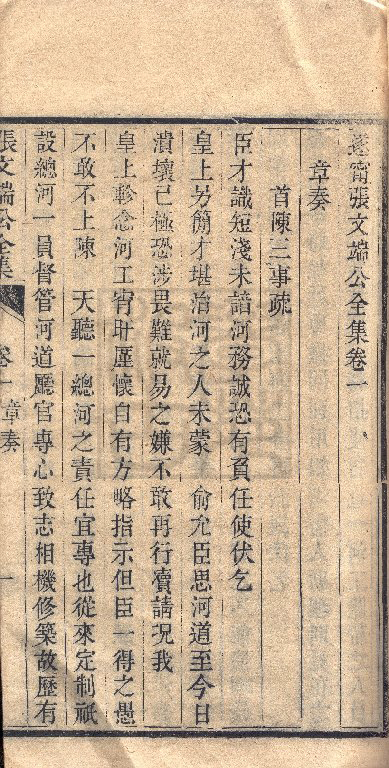 遂甯張文端公全集卷一
章奏
首陳三事疏
臣才識短淺未諳河務誠恐有負任使伏乞
皇上另簡才堪治河之人未蒙　俞允臣思河道至今日
潰壞已極恐涉畏難就易之嫌不敢再行瀆請況我
皇上軫念河工宵旰厪懷自有方略指示但臣一得之愚
不敢不上陳　天聽一總河之責任宜專也從來定制祇
設總河一員督管河道廳官專心致志相機修築故歷有
張文端公全集　卷一章奏　一